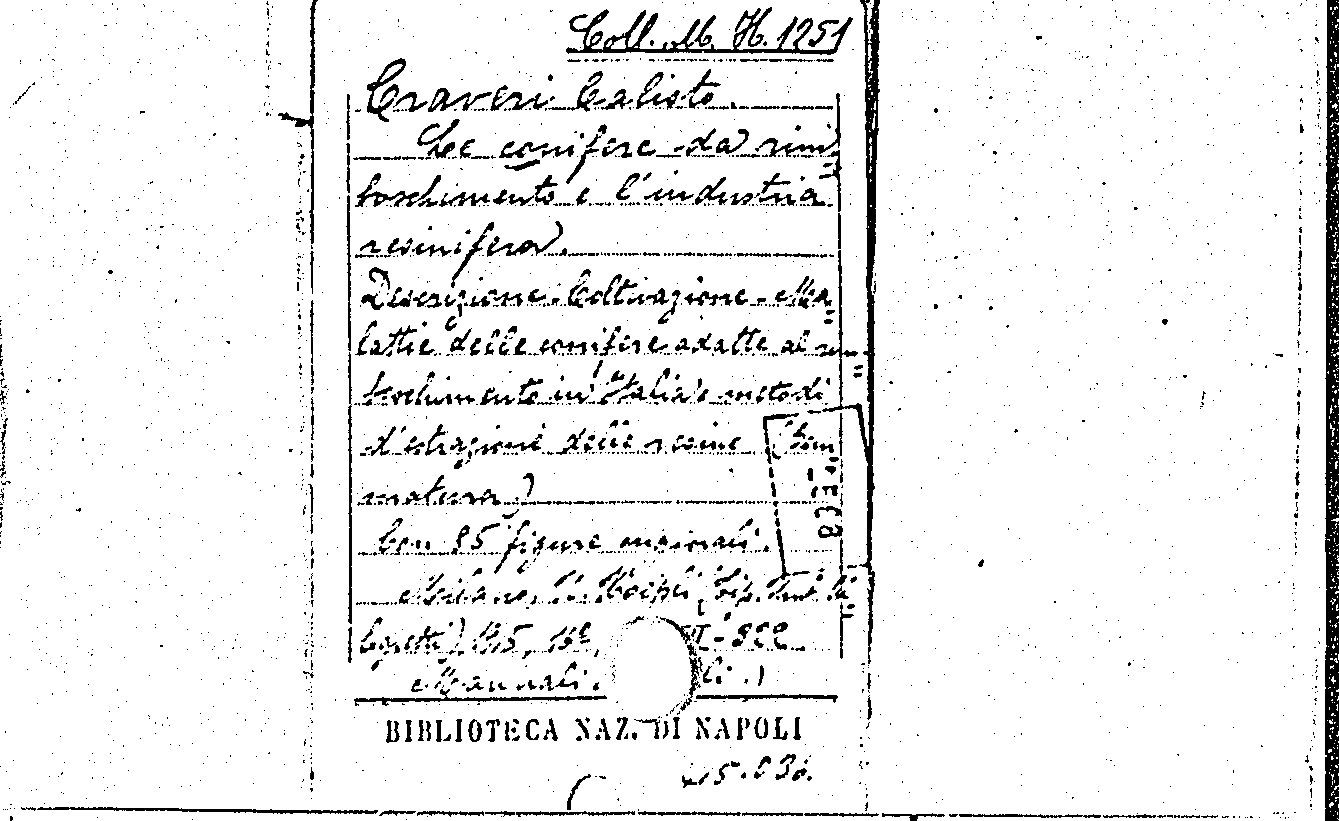 Coll. M. H. 1251
Craveri Calisto.
Le conifere da rim=
boschimento e l'industria
resinifera.
Descrizione. Coltivazione. Ma=
lattie delle conifere adatte al rim=
boschimento in Italia e metodi
d'estrazione delle resine (Gem=
matura)
Con 85 figure
Milano, U. Hoepli (Tip.
1915, 16°,
Manuali.
BIBLIOTECA NAZ. DI NAPOLI